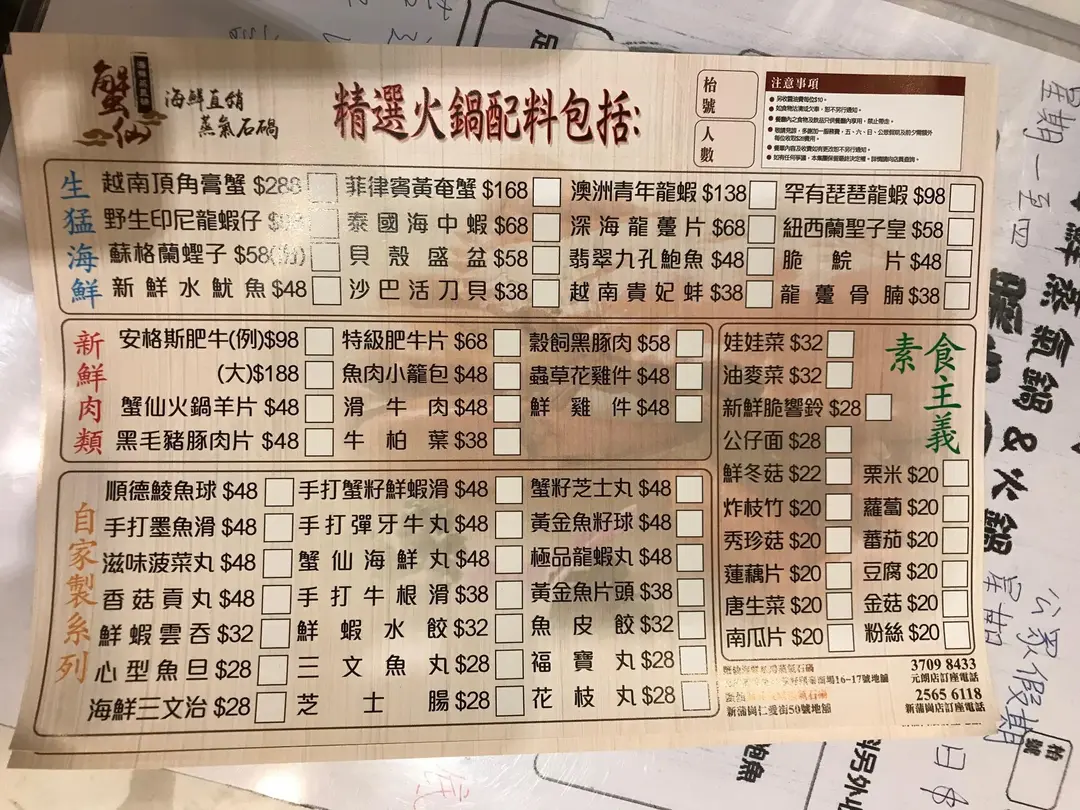 蟹仙
海鮮直銷
蒸氣石鍋
精選火鍋配料包括:
枱號
人數
注意事項
生猛海鮮
越南頂角膏蟹 $288 菲律賓黃奄蟹 $168 澳洲青年龍蝦 $138 罕有琵琶龍蝦 $98
野生印尼龍蝦仔 泰國海中蝦 $68 深海龍躉片 $68 紐西蘭聖子皇 $58
蘇格蘭蟶子 $58 貝殼盛盆 $58 翡翠九孔鮑魚 $48 脆鯇片 $48
新鮮水魷魚 $48 沙巴活刀貝 $38 越南貴妃蚌 $38 龍躉骨腩 $38
新鮮肉類
安格斯肥牛(例)$98 特級肥牛片 $68 穀飼黑豚肉 $58
(大)$188 魚肉小籠包 $48 蟲草花雞件 $48
蟹仙火鍋羊片 $48 滑牛肉 $48 鮮雞件 $48
黑毛豬豚肉片 $48 牛柏葉 $38
自家製系列
順德鯪魚球 $48 手打蟹籽鮮蝦滑 $48 蟹籽芝士丸 $48
手打墨魚滑 $48 手打彈牙牛丸 $48 黃金魚籽球 $48
滋味菠菜丸 $48 蟹仙海鮮丸 $48 極品龍蝦丸 $48
香菇貢丸 $48 手打牛根滑 $38 黃金魚片頭 $38
鮮蝦雲吞 $32 鮮蝦水餃 $32 魚皮餃 $32
心型魚旦 $28 三文魚丸 $28 福寶丸 $28
海鮮三文治 $28 芝士腸 $28 花枝丸 $28
素食主義
娃娃菜 $32
油麥菜 $32
新鮮脆響鈴 $28
公仔面 $28
鮮冬菇 $22 粟米 $20
炸枝竹 $20 蘿蔔 $20
秀珍菇 $20 番茄 $20
蓮藕片 $20 豆腐 $20
唐生菜 $20 金菇 $20
南瓜片 $20 粉絲 $20
3709 8433
元朗店訂座電話
2565 6118
新蒲崗仁愛街50號地舖 新蒲崗店訂座電話
星期一至四
蒸氣鍋&火鍋
公眾假期
枱號